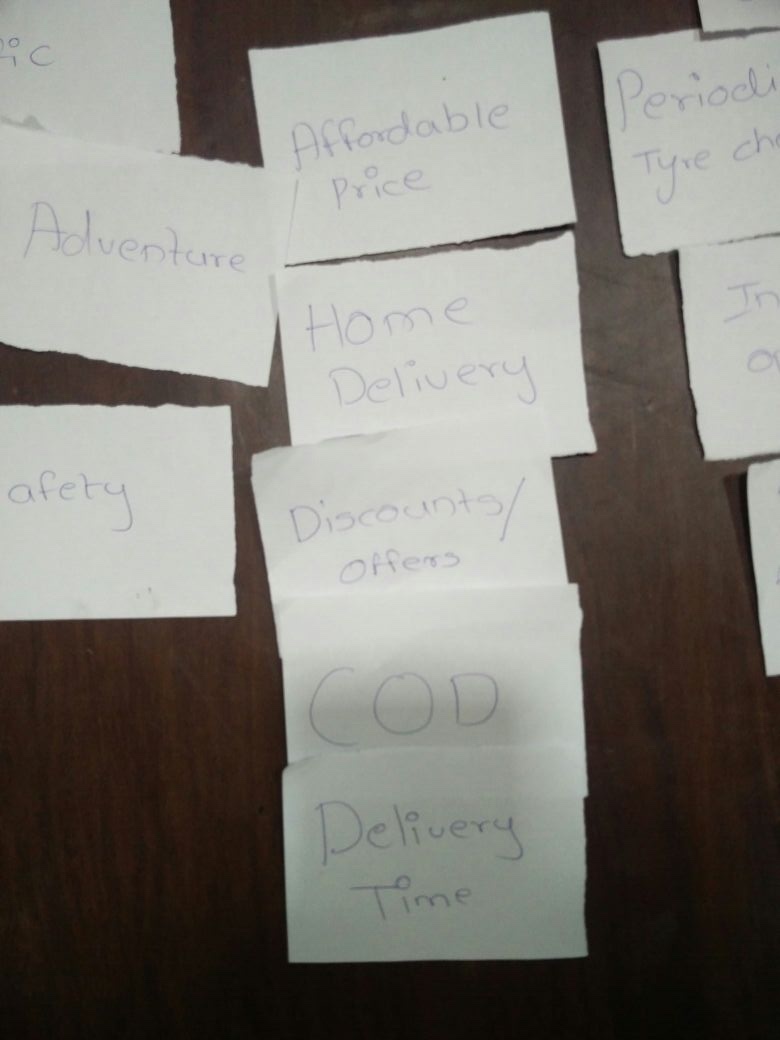 ic
Adventure
afety
Affordable
Price
Home
Delivery
Discounts/
offers
COD
Delivery
Time
Periodi
Tyre che
In